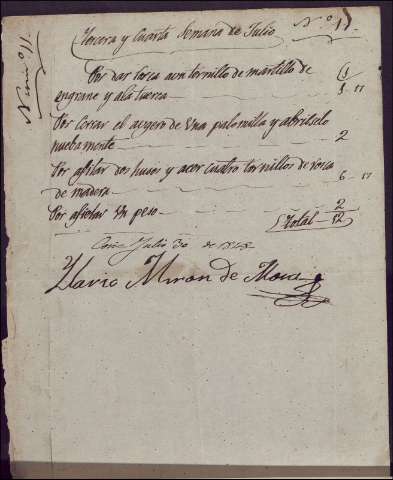 Num.º 11.
Tercera y Cuarta Semana de Julio N.º 1
Por dar rosca a un tornillo de martillo de
engrane y a la tuerca 3 17
Por cerrar el de Una palomilla y abrirselo
nuebamente 2
Por afilar dos husos y acer cuatro tornillos de rosca
de madera 6 17
Por afielar Un peso 2
Total 12
Julio 30 de
Miron de